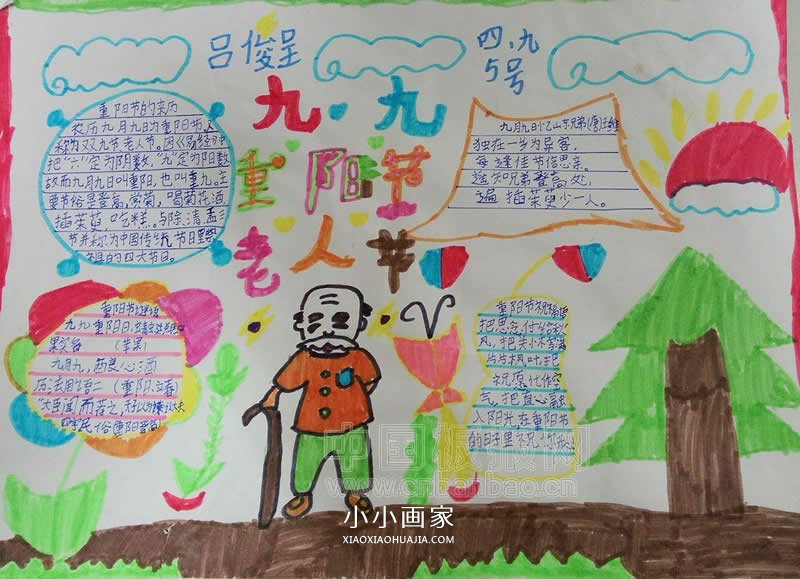 吕俊呈
四、九
5号
九·九
重阳节
老人节
重阳节的来历
农历九月九日为重阳节,又
称为双九节、老人节。因《易经》中
把“六”定为阴数,“九”定为阳数
故而九月九日叫重阳,也叫重九。主
要节俗是登高,赏菊,喝菊花酒
插茱萸,吃糕,与除、清、盂三
节并称为中国传统节日
的四大节日。
九月九日忆山东兄弟(唐)王维
独在一乡为异客,
每逢佳节信思亲。
遥知兄弟登高处,
遍插茱萸少一人。
重阳节谜语
九九重阳日
(苹果)
九月九,菊 心酒
(重阳、立春)
民俗(重阳登高)
重阳节祝福语
把思念付给秋
风,把
片片枫叶,把
祝愿 作空
气,把真心融
入阳光,在重阳节
的日子里
中国板报网
www.cnbanbao.cn
小小画家
XIAOXIAOHUAJIA.COM